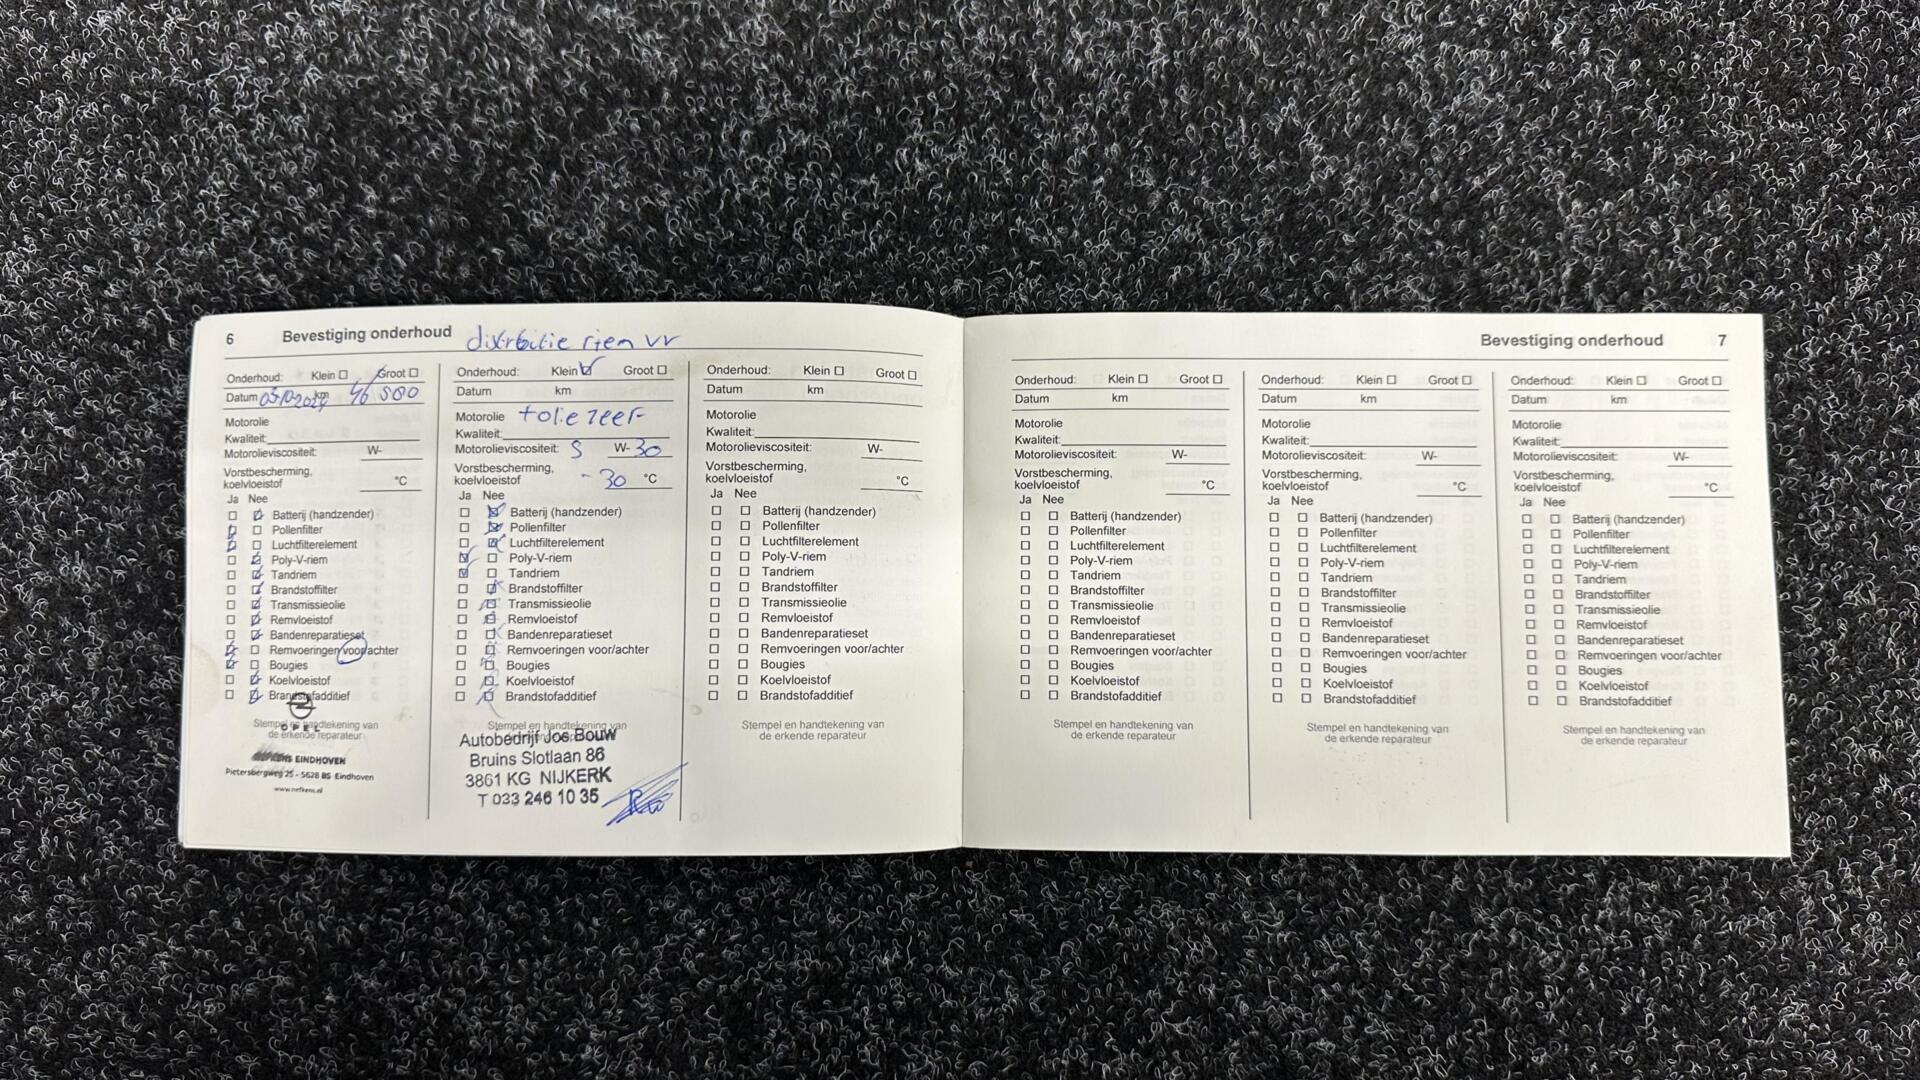 6 Bevestiging onderhoud distributie riem vv
Onderhoud: Klein Groot
Datum 03.10.2024 km 46 500
Motorolie
Kwaliteit:
Motorolieviscositeit: W-
Vorstbescherming,
koelvloeistof °C
Ja Nee
Batterij (handzender)
Pollenfilter
Luchtfilterelement
Poly-V-riem
Tandriem
Brandstoffilter
Transmissieolie
Remvloeistof
Bandenreparatieset
Remvoeringen voor/achter
Bougies
Koelvloeistof
Brandstofadditief
Stempel en handtekening van
de erkende reparateur
OPEL
EINDHOVEN
Pietersbergweg 25 - 5628 BS Eindhoven
www.nefkens.nl
Onderhoud: Klein Groot
Datum km
Motorolie + olie zeef
Kwaliteit:
Motorolieviscositeit: 5 W- 30
Vorstbescherming,
koelvloeistof - 30 °C
Ja Nee
Batterij (handzender)
Pollenfilter
Luchtfilterelement
Poly-V-riem
Tandriem
Brandstoffilter
Transmissieolie
Remvloeistof
Bandenreparatieset
Remvoeringen voor/achter
Bougies
Koelvloeistof
Brandstofadditief
Stempel en handtekening van
de erkende reparateur
Autobedrijf Jos Bouw
Bruins Slotlaan 86
3861 KG NIJKERK
T 033 246 10 35
Onderhoud: Klein Groot
Datum km
Motorolie
Kwaliteit:
Motorolieviscositeit: W-
Vorstbescherming,
koelvloeistof °C
Ja Nee
Batterij (handzender)
Pollenfilter
Luchtfilterelement
Poly-V-riem
Tandriem
Brandstoffilter
Transmissieolie
Remvloeistof
Bandenreparatieset
Remvoeringen voor/achter
Bougies
Koelvloeistof
Brandstofadditief
Stempel en handtekening van
de erkende reparateur
Bevestiging onderhoud 7
Onderhoud: Klein Groot
Datum km
Motorolie
Kwaliteit:
Motorolieviscositeit: W-
Vorstbescherming,
koelvloeistof °C
Ja Nee
Batterij (handzender)
Pollenfilter
Luchtfilterelement
Poly-V-riem
Tandriem
Brandstoffilter
Transmissieolie
Remvloeistof
Bandenreparatieset
Remvoeringen voor/achter
Bougies
Koelvloeistof
Brandstofadditief
Stempel en handtekening van
de erkende reparateur
Onderhoud: Klein Groot
Datum km
Motorolie
Kwaliteit:
Motorolieviscositeit: W-
Vorstbescherming,
koelvloeistof °C
Ja Nee
Batterij (handzender)
Pollenfilter
Luchtfilterelement
Poly-V-riem
Tandriem
Brandstoffilter
Transmissieolie
Remvloeistof
Bandenreparatieset
Remvoeringen voor/achter
Bougies
Koelvloeistof
Brandstofadditief
Stempel en handtekening van
de erkende reparateur
Onderhoud: Klein Groot
Datum km
Motorolie
Kwaliteit:
Motorolieviscositeit: W-
Vorstbescherming,
koelvloeistof °C
Ja Nee
Batterij (handzender)
Pollenfilter
Luchtfilterelement
Poly-V-riem
Tandriem
Brandstoffilter
Transmissieolie
Remvloeistof
Bandenreparatieset
Remvoeringen voor/achter
Bougies
Koelvloeistof
Brandstofadditief
Stempel en handtekening van
de erkende reparateur